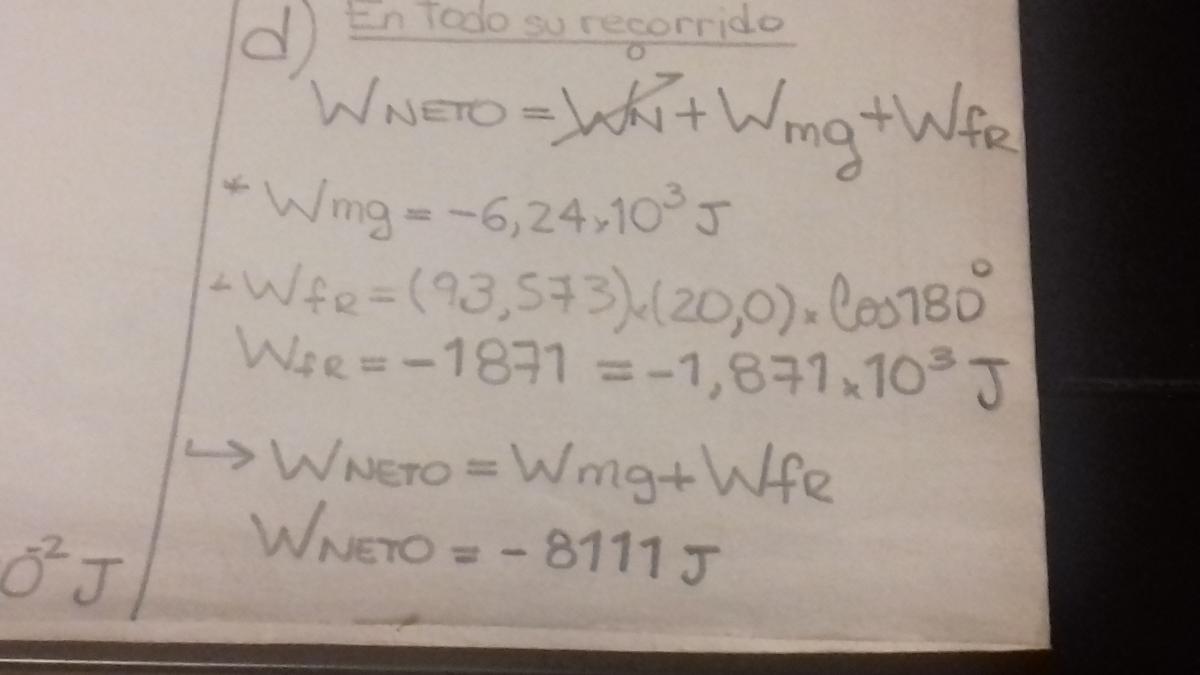 d) En Todo su recorrido
0
WNETO = WN + Wmg + WfR
* Wmg = -6,24x10³ J
+ WfR = (93,573)x(20,0)x Cos180°
WfR = -1871 = -1,871x10³ J
↳ WNETO = Wmg + WfR
WNETO = - 8111 J
0⁻² J